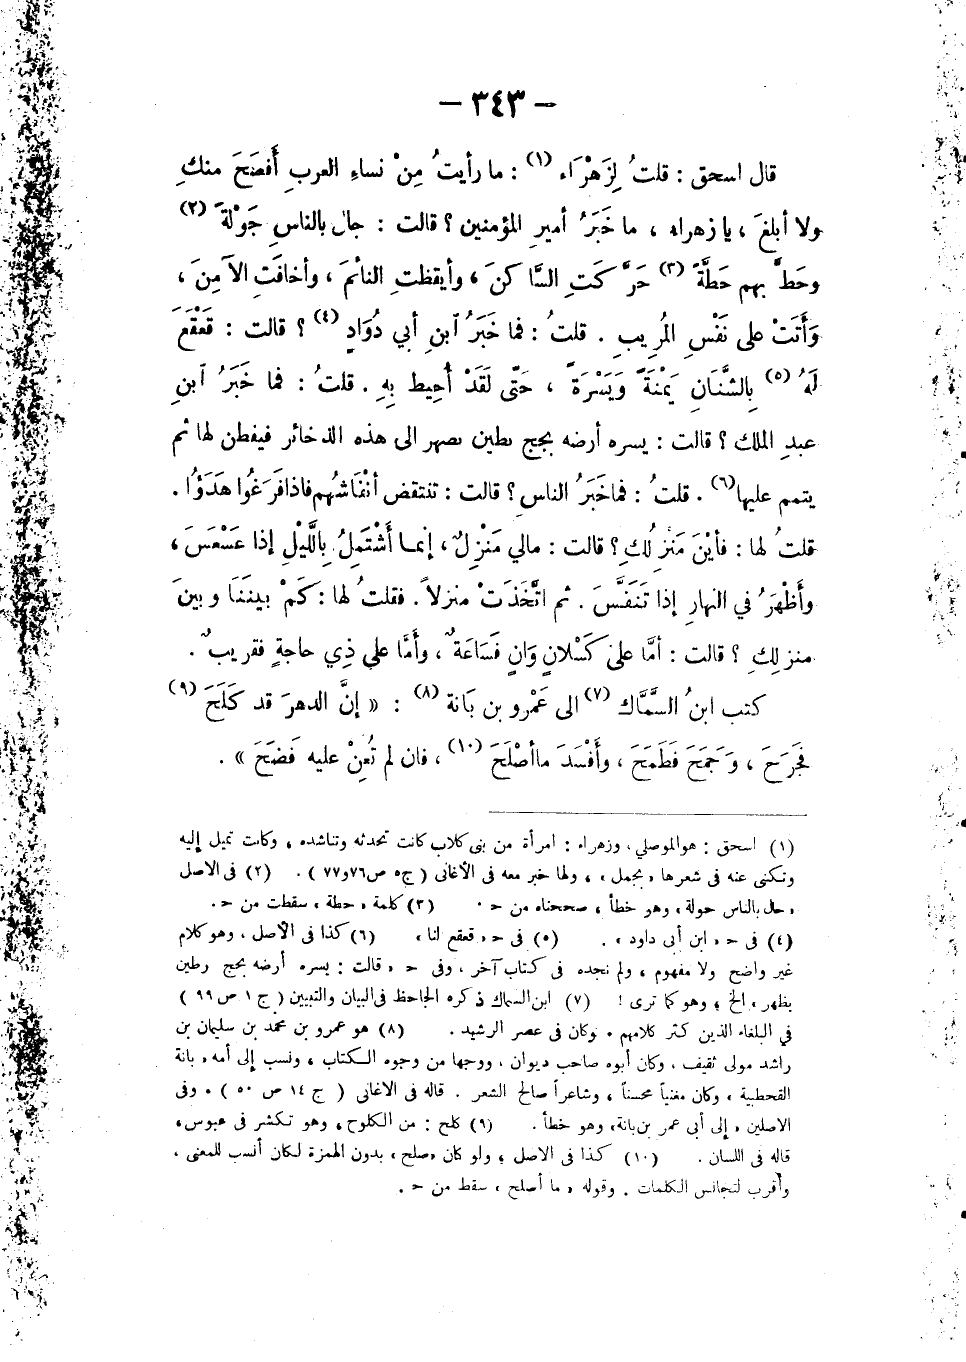 — ٣٤٣ —
قال اسحق : قلتُ لِزَهْرَاء (١) : ما رأيتُ مِنْ نساءِ العربِ أَفصَحَ منكِ
ولا أبلغَ ، يا زهراء ، ما خَبَرُ أميرِ المؤمنين ؟ قالت : جال بالناسِ جَوْلةً (٢)
وحَطَّ بهم حَطَّةً (٣) حَرَّكَتِ السَّاكنَ ، وأيقظتِ النائمَ ، وأخافَتِ الآمِنَ ،
وَأَتَتْ على نَفْسِ المُرِيبِ . قلتُ : فما خَبَرُ ٱبنِ أبي دُوَادٍ (٤) ؟ قالت : قَعْقَعَ
لَهُ (٥) بِالشَّنَانِ يَمْنَةً وَيَسْرَةً ، حَتّى لَقَدْ أُحِيط بِهِ . قلتُ : فما خَبَرُ ٱبنِ
عبدِ الملك ؟ قالت : يسره أرضه بجج بطين يصهر الى هذه الذخائر فيفطن لها ثم
يتمم عليها (٦) . قلتُ : فما خَبَرُ الناسِ ؟ قالت : تنتقض أنْفَاسُهم فاذا فَرَغُوا هَدَؤا .
قلتُ لها : فأيْنَ مَنزِلُكِ ؟ قالت : مالي مَنْزِلٌ ، إنمـا أَشْتَمِلُ بِاللَّيْلِ إذا عَسْعَسَ ،
وأَظْهَرُ في النهارِ إذا تَنَفَّسَ . ثم اتَّخَذَتْ منزلاً . فقلتُ لها : كَمْ بينَنَا وبينَ
منزلِكِ ؟ قالت : أمَّا على كَسْلانٍ وَانٍ فَسَاعَةٌ ، وأَمَّا على ذِي حاجةٍ فقريبٌ .
كتب ابنُ السَّمَّاك (٧) الى عَمْرو بن بَانة (٨) : « إنَّ الدهرَ قد كَلَحَ (٩)
فَجَرَحَ ، وَجَمَحَ فَطَمَحَ ، وأَفْسَدَ ما أصْلَحَ (١٠) ، فان لم تُعِنْ عليه فَضَحَ » .
(١) اسحق : هو الموصلي ، وزهراء : امرأة من بنى كلاب كانت تحدثه وتناشده ، وكانت تميل إليه
وتكنى عنه فى شعرها « بجمل » ، ولها خبر معه فى الأغانى ( ج٥ ص٧٦و٧٧ ) . (٢) فى الاصل
« حال بالناس حولة » وهو خطأ ، صححناه من حـ . (٣) كلمة « حطة » سقطت من حـ .
(٤) فى حـ « ابن أبى داود » . (٥) فى حـ « قعقع لنا » (٦) كذا فى الأصل ، وهو كلام
غير واضح ولا مفهوم ، ولم نجده فى كتاب آخر ، وفى حـ « قالت : يسره أرضه بحج رطين
بظهر » الخ ، وهو كما ترى ! (٧) ابن السماك ذكره الجاحظ فى البيان والتبيين ( ج ١ ص ٩٩ )
في البلغاء الذين كثر كلامهم . وكان فى عصر الرشيد . (٨) هو عمرو بن محمد بن سليمان بن
راشد مولى ثقيف ، وكان أبوه صاحب ديوان ، ووجها من وجوه الكتاب ، ونسب إلى أمه « بانة
القحطبية » وكان مغنياً محسناً ، وشاعراً صالح الشعر . قاله فى الاغانى ( ج ١٤ ص ٥٠ ) . وفى
الاصلين « إلى أبى عمر بن بانة » وهو خطأ . (٩) كلح : من الكلوح ، وهو تكشر فى عبوس ،
قاله فى اللسان . (١٠) كذا فى الاصل ، ولو كان « صلح » بدون الهمزة لكان أنسب للمعنى ،
وأقرب لتجانس الكلمات . وقوله « ما أصلح » سقط من حـ .